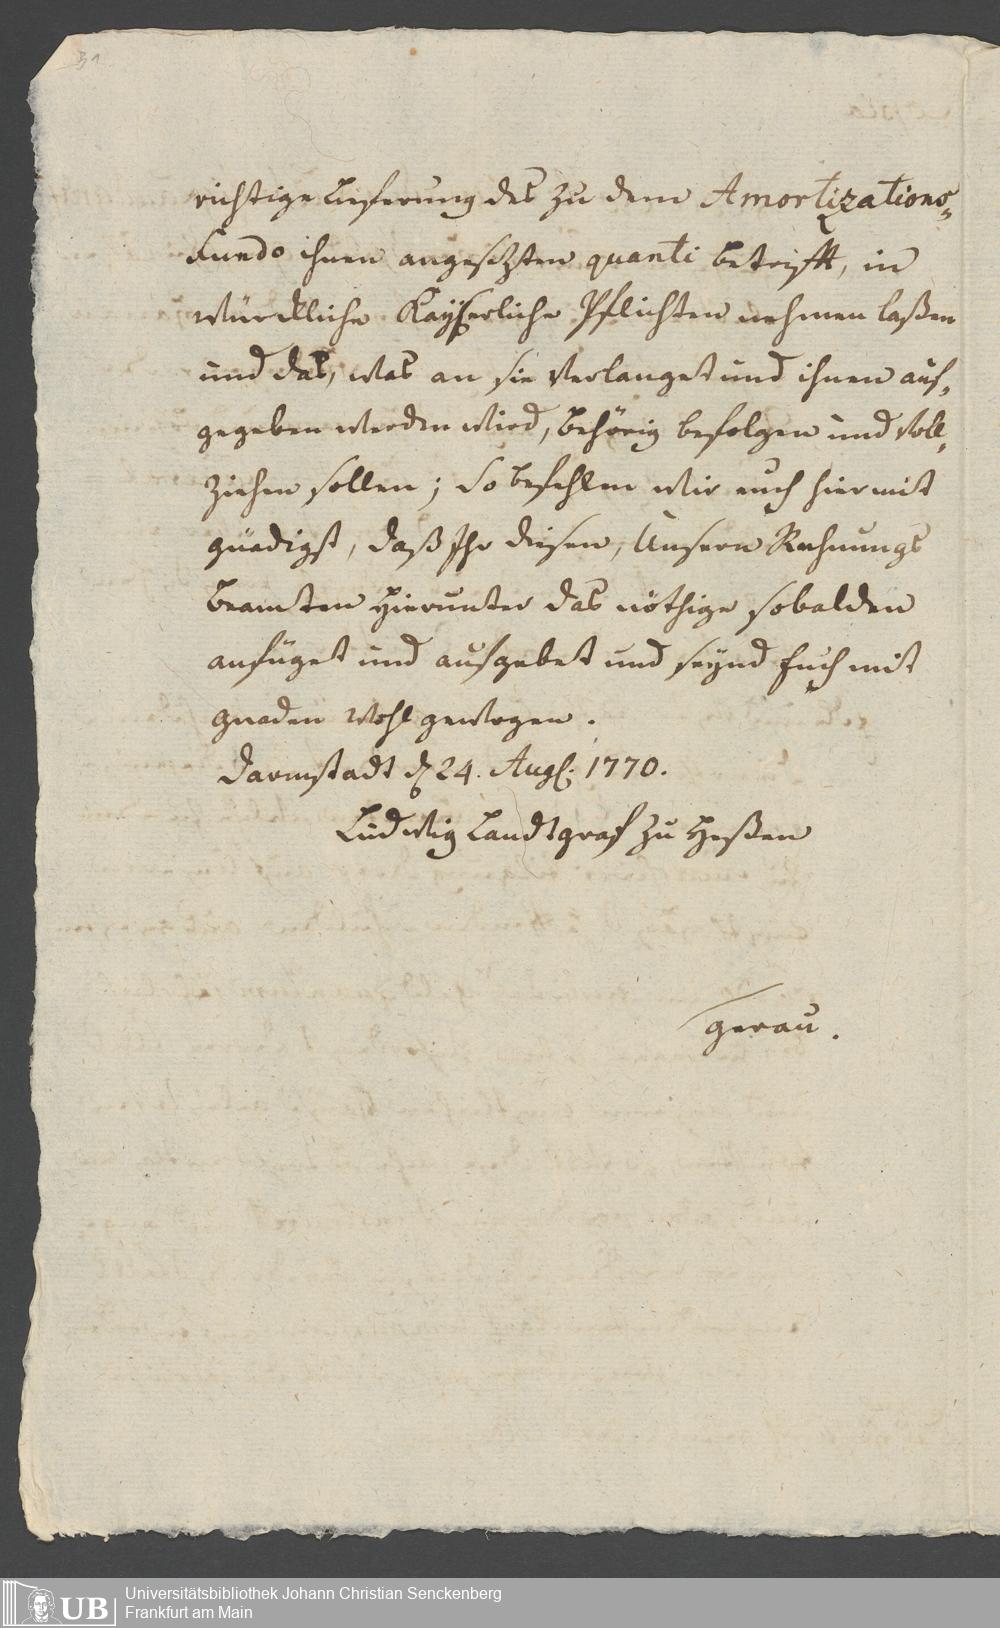 31
richtige Lieferung des zu dem Amortizations-
Fundo ihnen angesezten quanti betrifft, in
würckliche Kayserliche Pflichten nehmen laßen
und das, was an sie verlanget und ihnen auf-
gegeben werden wird, behörig befolgen und voll-
ziehen sollen; So befehlen wir euch hiermit
gnädigst, daß Ihr diesen, Unsern Rechnungs
Beamten hierunter das nöthige sobalden
anfüget und aufgebet und seynd Euch mit
gnaden wohl gewogen.
Darmstadt d 24. Aug. 1770.
Ludwig Landgraf zu Heßen
gerau.
UB
Universitätsbibliothek Johann Christian Senckenberg
Frankfurt am Main